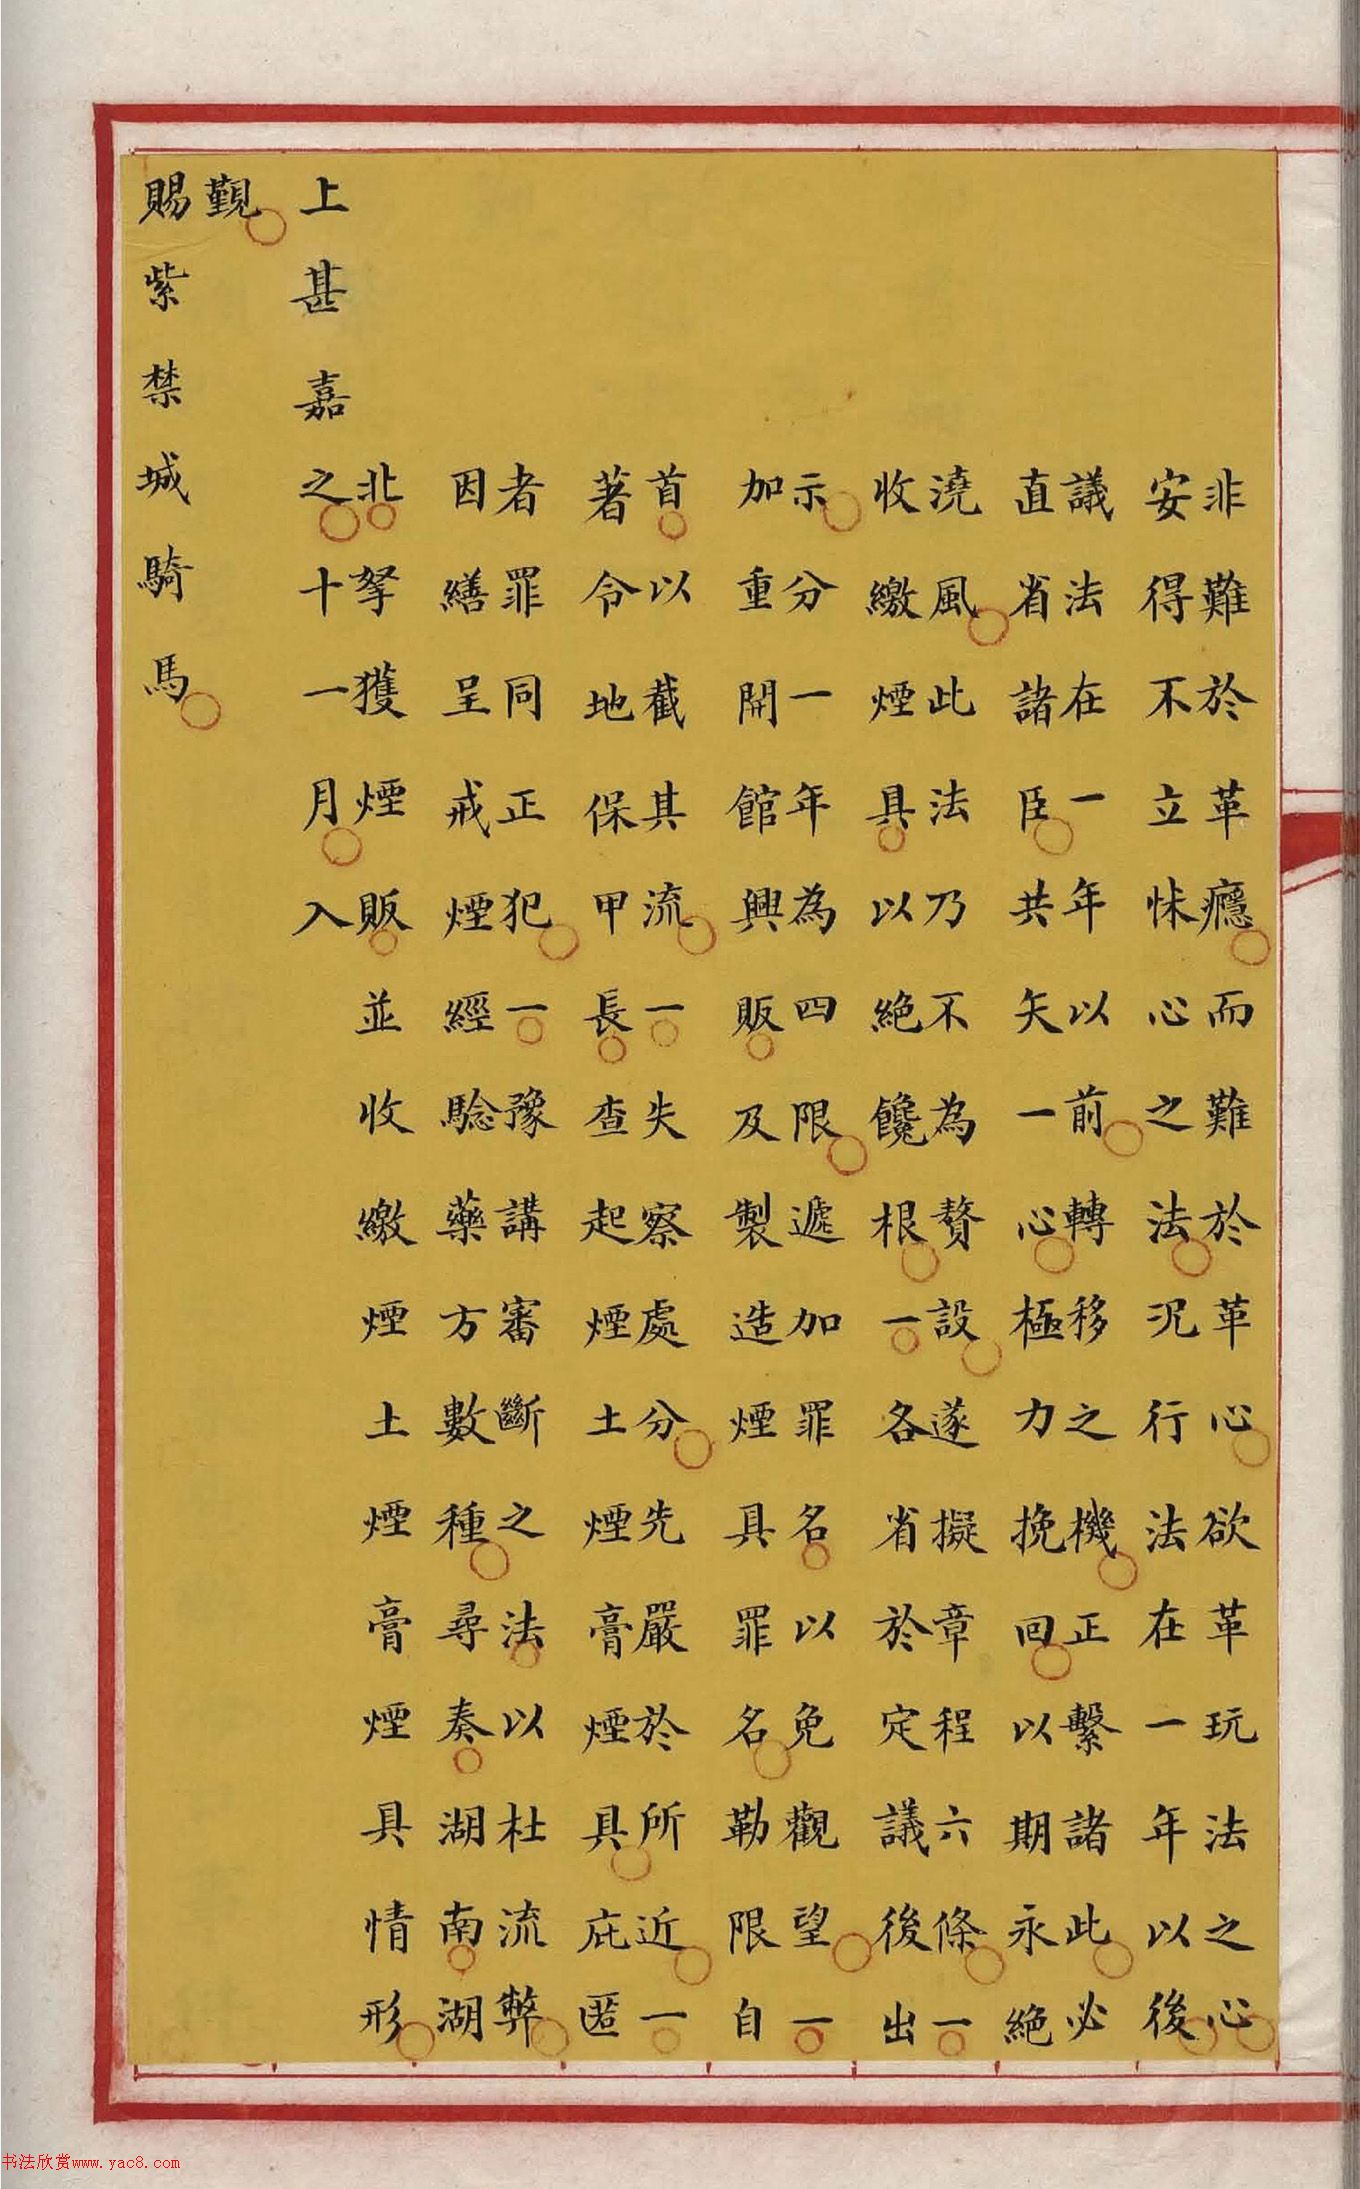 非難於革癮而難於革心欲革玩法之心
安得不立怵心之法況行法在一年以後
議法在一年以前轉移之機正繫諸此必
直省諸臣共矢一心極力挽回以期永絕
澆風此法乃不為贅設遂擬章程六條一
收繳煙具以絕饞根一各省於定議後出
示分一年為四限遞加罪名以免觀望一
加重開館興販及製造煙具罪名勒限自
首以截其流一失察處分先嚴於所近一
著令地保甲長查起煙土煙膏煙具庇匿
者罪同正犯一豫講審斷之法以杜流弊
因繕呈戒煙經驗藥方數種尋奏湖南湖
北拏獲煙販並收繳煙土煙膏煙具情形
上甚嘉之十一月入
覲
賜紫禁城騎馬
书法欣赏www.yac8.com